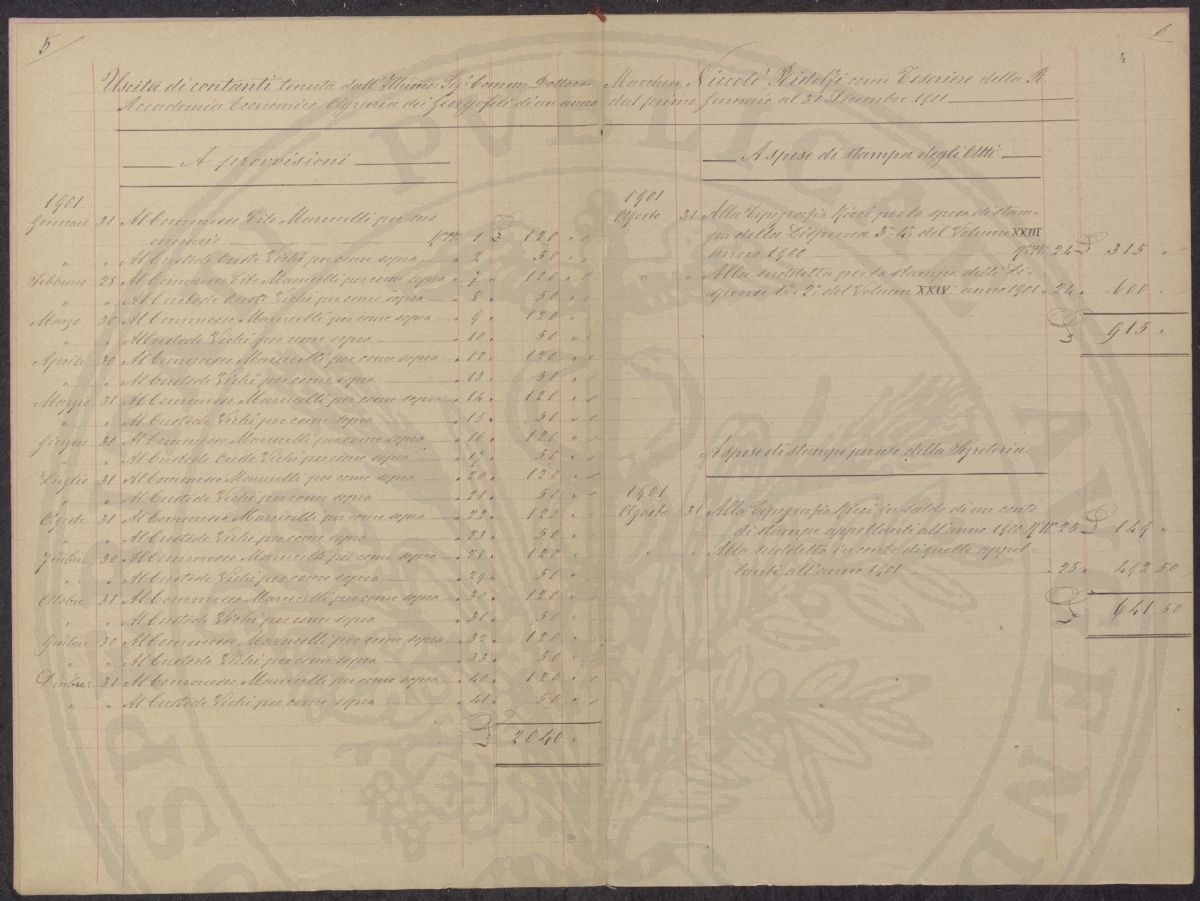 5
Uscita di contanti tenuta dall' Illmo Sig: Comm. Dottore
Accademia Economico Agraria dei Georgofili di un anno
A provvisioni
1901
Gennaio 31 Al Commesso Tito Marucelli per suo
onorario N. 1 £ 120 " "
" " Al Custode Oreste Vichi per come sopra " 2 " 50 " "
Febbraio 28 Al Commesso Tito Marucelli per come sopra " 7 " 120 " "
" " Al Custode Oreste Vichi per come sopra " 8 " 50 " "
Marzo 30 Al Commesso Marucelli per come sopra " 9 " 120 " "
" " Al Custode Vichi per come sopra " 10 " 50 " "
Aprile 30 Al Commesso Marucelli per come sopra " 12 " 120 " "
" " Al Custode Vichi per come sopra " 13 " 50 " "
Maggio 31 Al Commesso Marucelli per come sopra " 14 " 120 " "
" " Al Custode Vichi per come sopra " 15 " 50 " "
Giugno 31 Al Commesso Marucelli per come sopra " 16 " 120 " "
" " Al Custode Oreste Vichi per come sopra " 17 " 50 " "
Luglio 31 Al Commesso Marucelli per come sopra " 20 " 120 " "
" " Al Custode Vichi per come sopra " 21 " 50 " "
Agosto 31 Al Commesso Marucelli per come sopra " 22 " 120 " "
" " Al Custode Vichi per come sopra " 23 " 50 " "
7mbre 30 Al Commesso Marucelli per come sopra " 28 " 120 " "
" " Al Custode Vichi per come sopra " 29 " 50 " "
Ottobre 31 Al Commesso Marucelli per come sopra " 30 " 120 " "
" " Al Custode Vichi per come sopra " 31 " 50 " "
9mbre 30 Al Commesso Marucelli per come sopra " 32 " 120 " "
" " Al Custode Vichi per come sopra " 33 " 50 " "
Dmbre 31 Al Commesso Marucelli per come sopra " 40 " 120 " "
" " Al Custode Vichi per come sopra " 41 " 50 " "
£ 2040 "
6
4
Marchese Niccolò Ridolfi come Tesoriere della R.
dal primo Gennaio al 31 Dicembre 1901
A spese di stampa degli Atti
1901
Agosto 31 Alla Tipografia Ricci per la spesa di stam-
pa della Dispensa 3a 4a del Volume XXIII
anno 1900 N. 24 £ 315 "
" " Alla suddetta per la stampa delle Di-
spense 1a e 2a del Volume XXIV anno 1901 " 24 " 600 "
£ 915 "
A spese di stampe per uso della Segreteria
1901
Agosto 31 Alla Tipografia Ricci in saldo di un conto
di stampe appellanti all' anno 1900 N. 25 £ 149 "
" " Alla suddetta in conto di quelle appel-
lanti all' anno 1901 " 25 " 492 50
£ 641 50
PUBLICAE
AUGENDAE
PROSPERITATI